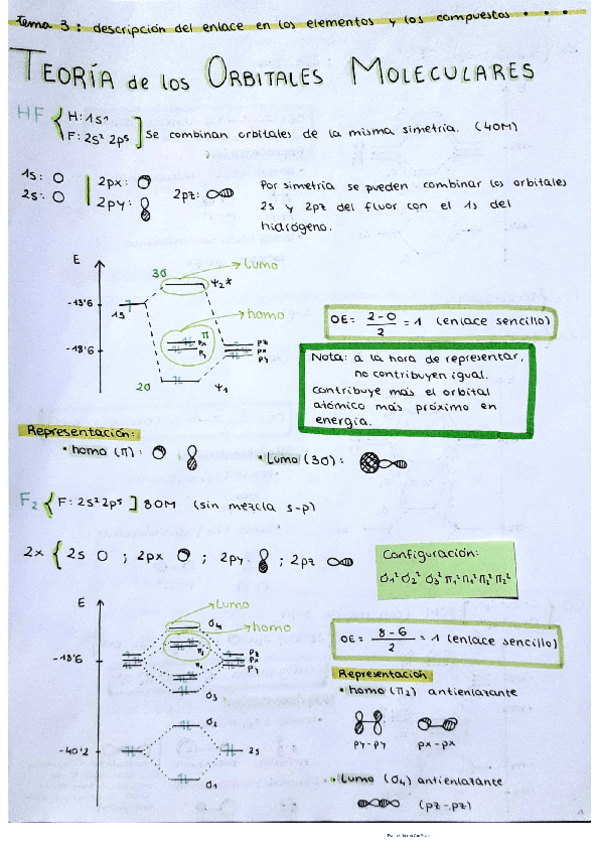 Tema 3: descripción del enlace en los elementos y los compuestos...
TEORÍA de los ORBITALES MOLECULARES
HF { H: 1s¹
F: 2s² 2p⁵ ] Se combinan orbitales de la misma simetría. (4OM)
1s:
2s:
2px:
2py:
2pz:
Por simetría se pueden combinar los orbitales
2s y 2pz del fluor con el 1s del
hidrógeno.
E
3σ
LUMO
ψ₂*
-13'6
1s
homo
π
px
py
-18'6
pz
px
py
2σ
ψ₁
OE = 2-0/2 = 1 (enlace sencillo)
Nota: a la hora de representar,
no contribuyen igual.
Contribuye más el orbital
atómico más próximo en
energía.
Representación:
• homo (π):
• LUMO (3σ):
F₂ { F: 2s² 2p⁵ ] 8OM (sin mezcla s-p)
2x { 2s ; 2px ; 2py ; 2pz
Configuración:
σ₁² σ₂² σ₃² π₁² π₁² π₂² π₂²
E
LUMO
σ₄
homo
-18'6
pz
px
py
σ₃
σ₂
-40'2
2s
σ₁
OE = 8-6/2 = 1 (enlace sencillo)
Representación
• homo (π₂) antienlazante
py-py
px-px
• LUMO (σ₄) antienlazante
(pz-pz)